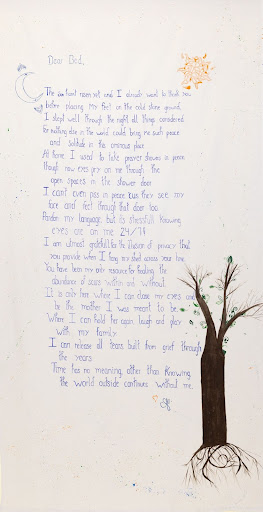 Dear Bed,
The sun hasnt risen yet and I already want to thank you
before placing my feet on the cold stone ground
I slept well through the night all things considered
for nothing else in the world could bring me such peace
and solitude in this ominous place
At home I used to take prayer showers in peace
though now eyes pry on me through the
open spaces in the shower door
I cant even piss in peace cus they see my
face and feet through that door too.
Pardon my language but its stressful knowing
eyes are on me 24/7!!
I am almost gratefull for the illusion of privacy that
you provide when I hang my sheet across your
You have been my only resource for healing the
abundance of scars within and without.
It is only here where I can close my eyes and
be the mother I was meant to be.
Where I can hold her again laugh and play
with my family.
I can release all tears built from grief through
the years
Time has no meaning other than knowing
the world outside continues without me.